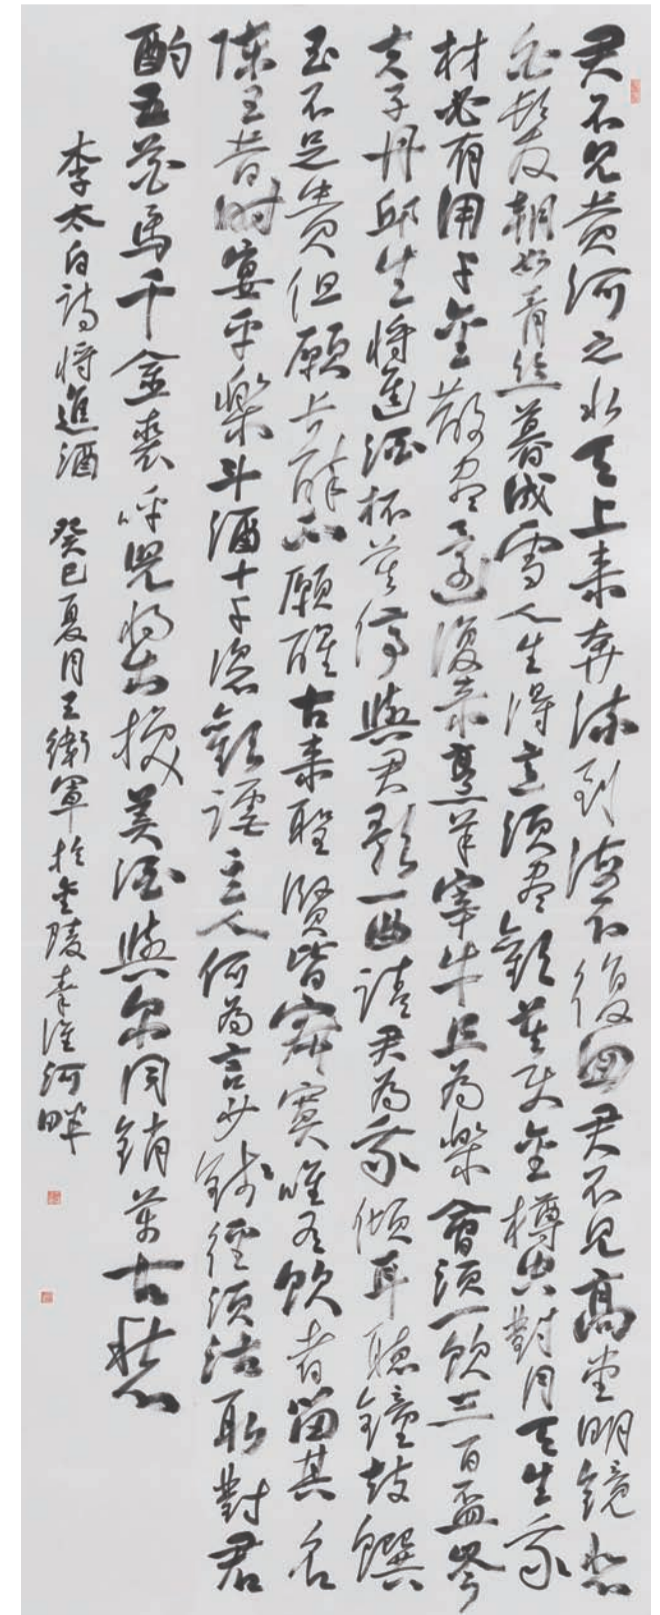 君不見黄河之水天上来奔流到海不復回君不見高堂明鏡悲
白髮朝如青丝暮成雪人生得意須盡歡莫使金樽空對月天生我
材必有用千金散盡還復来烹羊宰牛且為樂會須一飲三百盃岑
夫子丹邱生将進酒杯莫停與君歌一曲請君為我傾耳聽鐘鼓饌
玉不足貴但願長醉不願醒古来聖賢皆寂寞唯有飲者留其名
陳王昔時宴平樂斗酒十千恣歡謔主人何為言少錢徑須沽取對君
酌五花馬千金裘呼兒将出換美酒與尔同銷萬古愁
李太白詩将進酒 癸巳夏月王衛軍於金陵秦淮河畔